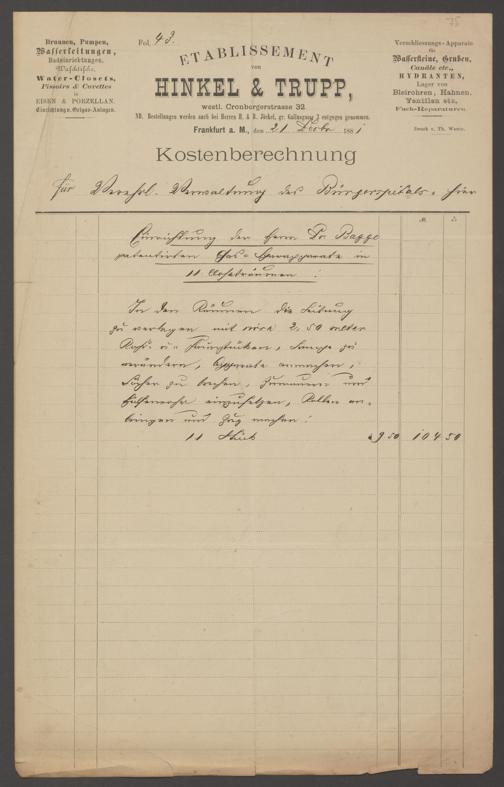 75
Fol. 43.
Brunnen, Pumpen,
Wasserleitungen,
Badeinrichtungen,
Waschtische,
Water-Closets,
Pissoirs & Cuvettes
in
EISEN & PORZELLAN.
ETABLISSEMENT
von
HINKEL & TRUPP,
westl. Cronbergerstrasse 32.
NB. Bestellungen werden auch bei Herren entgegen genommen.
Frankfurt a. M., den 21 Decbr 1881
Verschliessungs-Apparate
für
Wassersteine, Gruben,
Canäle etc.,
HYDRANTEN,
Lager von
Bleirohren, Hahnen,
Ventilen etc,
Fach-Reparaturen.
Druck v. Th. Wentz.
Kostenberechnung
für Verehrl. Verwaltung des Bürgerspitals, hier
Einrichtung der Herrn Dr. Bagge
patentirten Gas-Sparapparate in
11 Closeträumen:
In den Räumen die Leitung
zu verlegen mit circa 2,50 meter
Rohr u. Lampe zu
verändern, Apparate anmachen,
Löcher zu brechen, und
einzusetzen, an-
bringen und machen:
11 Stück à 9.50 104 50